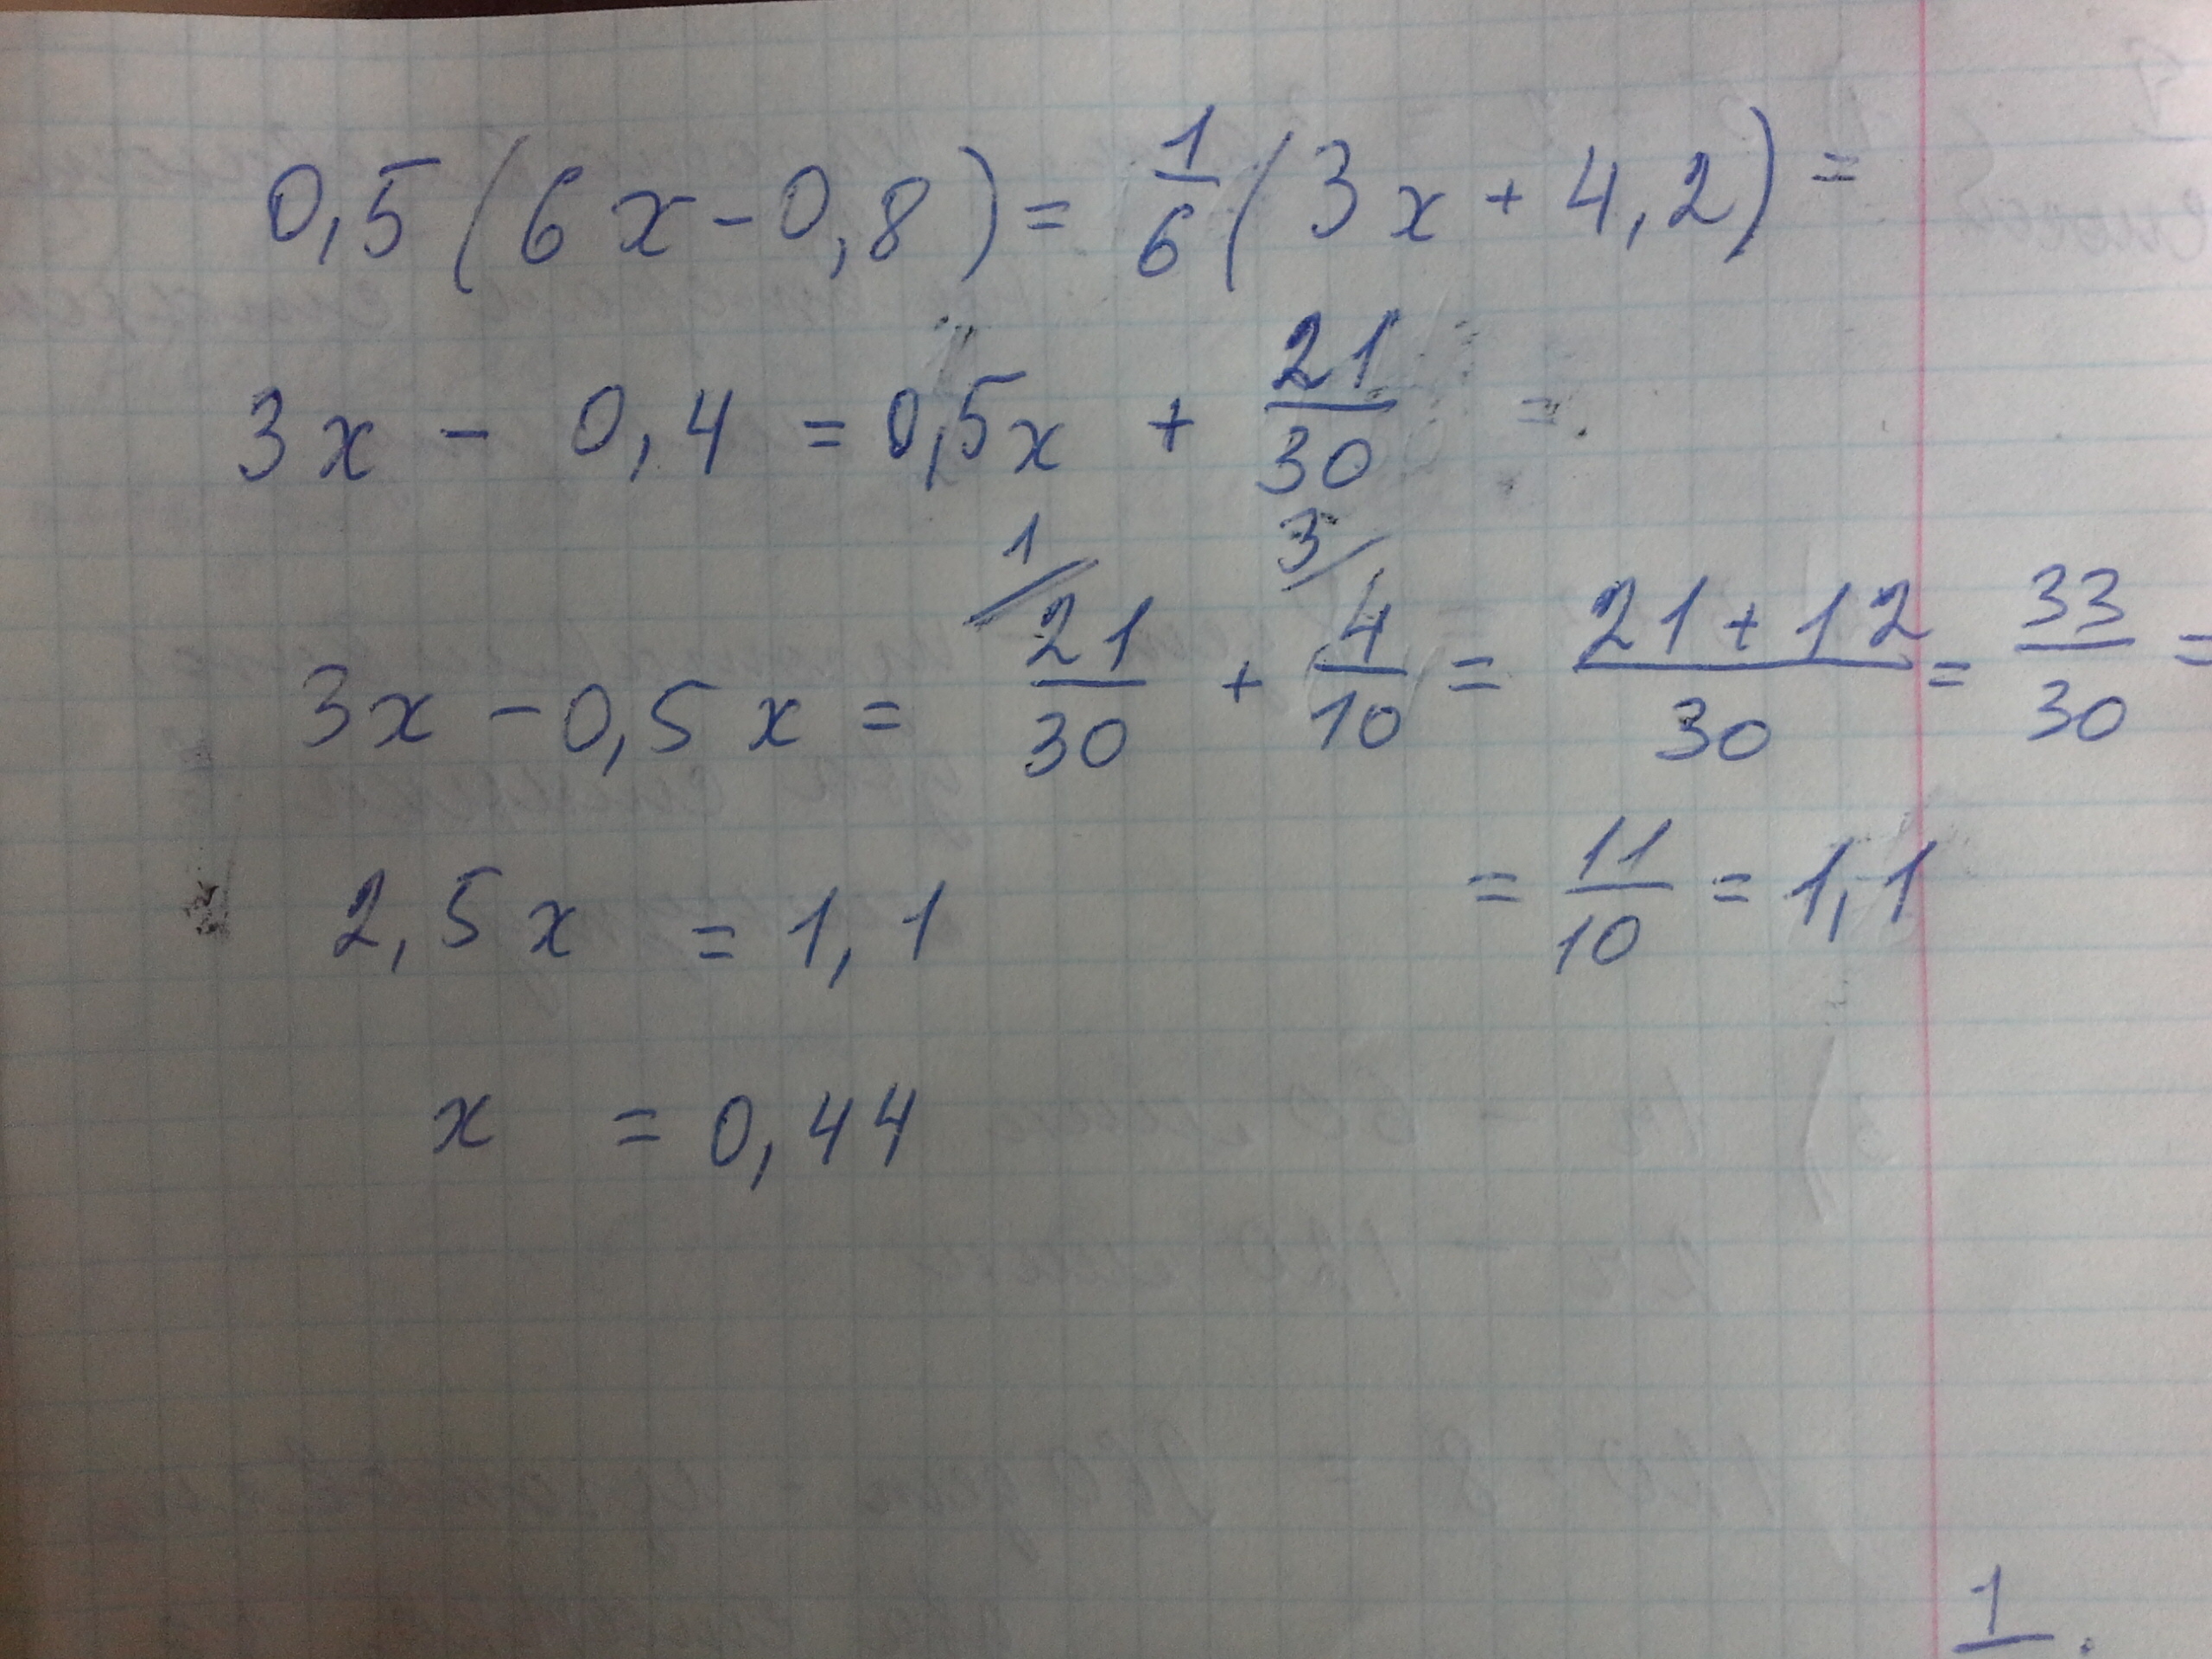 0,5(6x-0,8)=1/6(3x+4,2)=
3x - 0,4 = 0,5x + 21/30 =
1/ 3/
3x-0,5x = 21/30 + 4/10 = 21+12/30 = 33/30 =
= 11/10 = 1,1
2,5x = 1,1
x = 0,44
1